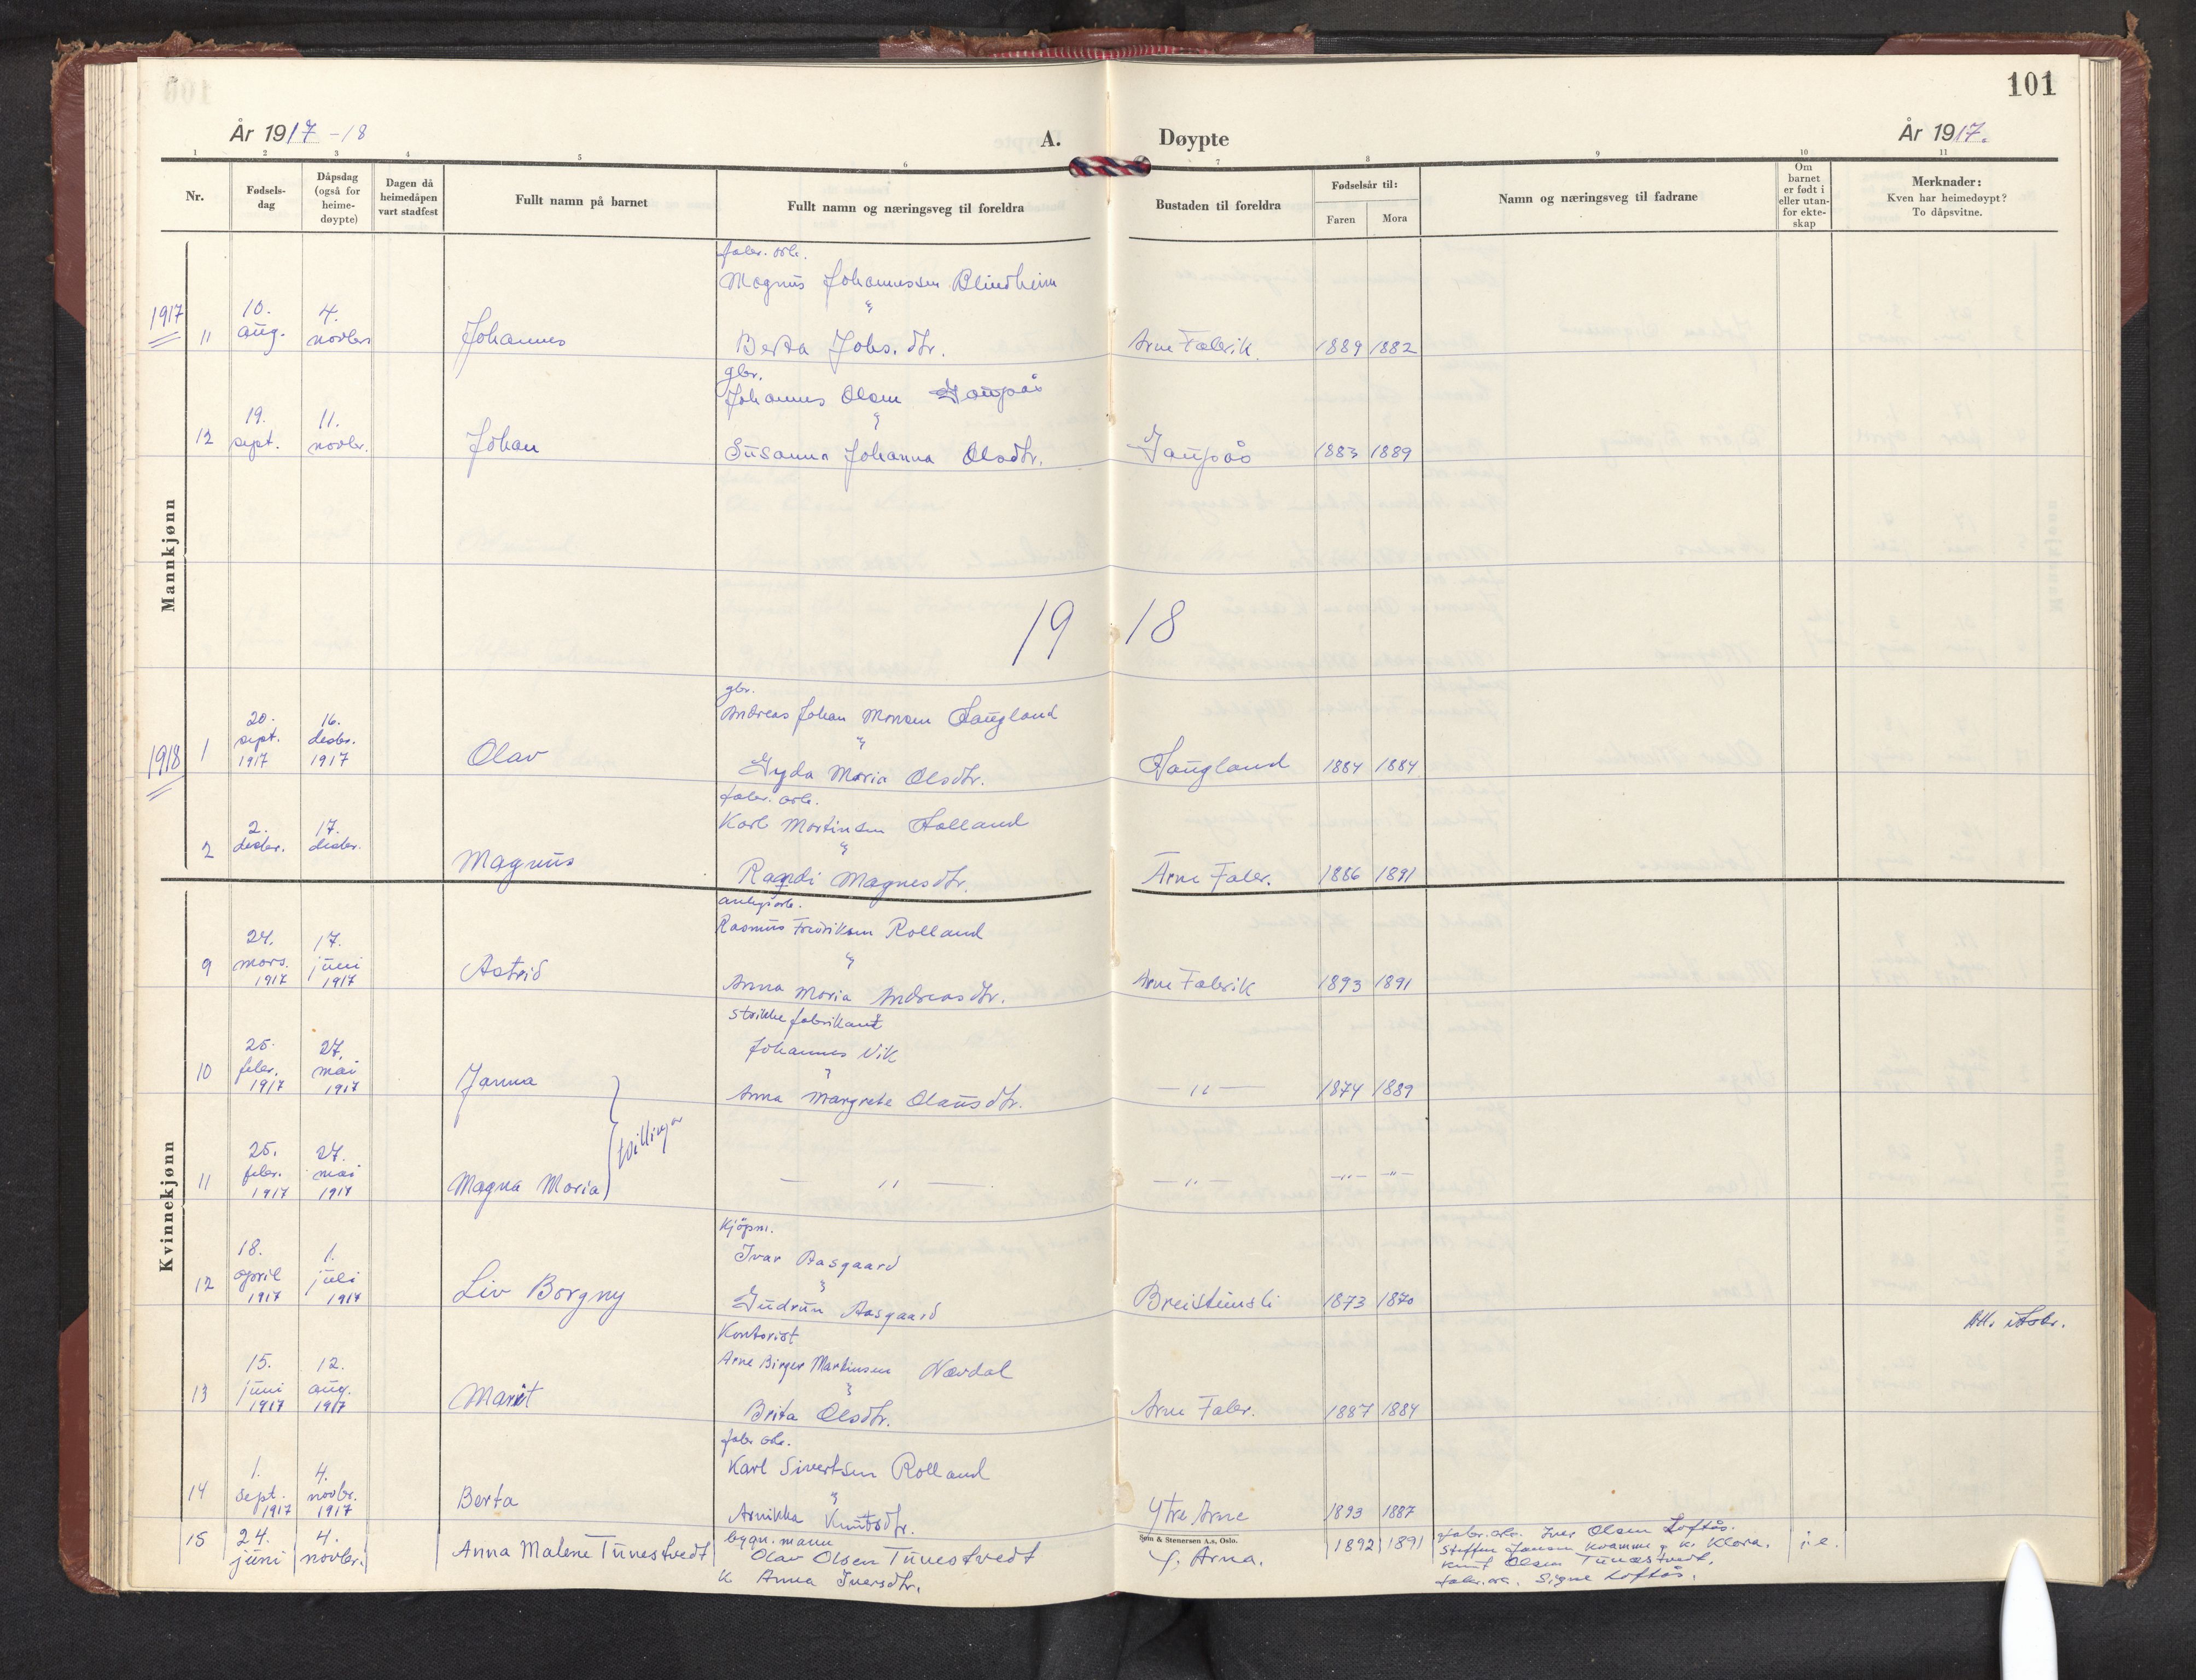 101
År 1917 -18
A.
Døypte
År 1917.
1 2 3 4 5 6 7 8 9 10 11
Nr.
Fødsels-
dag
Dåpsdag
(også for
heime-
døypte)
Dagen då
heimedåpen
vart stadfest
Fullt namn på barnet
Fullt namn og næringsveg til foreldra
Bustaden til foreldra
Fødselsår til:
Faren
Mora
Namn og næringsveg til fadrane
Om
barnet
er født i
eller utan-
for ekte-
skap
Merknader:
Kven har heimedøypt?
To dåpsvitne.
Mannkjønn
fabr. arb.
Magnus Johannessen Blindheim
1917
11
10.
aug.
4.
novbr.
Johannes
Berta Johs. dtr.
Arne Fabrik.
1889
1882
gbr.
Johannes Olsen Gaupås
12
19.
sept.
11.
novbr.
Johan
Susanna Johanna Olsdtr.
Gaupås
1883
1889
19 18
gbr.
Andreas Johan Monsen Haugland
1918
1
20.
sept.
1917
16.
desbr.
1917
Olav
Gyda Maria Olsdtr.
Haugland
1884
1884
fabr. arb.
Karl Martinsen Holland
2
2.
desbr.
17.
desbr.
Magnus
Randi Magnesdtr.
Arne Fabr.
1886
1891
Kvinnekjønn
Rasmus Fredriksen Rolland
9
24.
mars.
1917
17.
juni
1917
Astrid
Anna Maria Andreasdtr.
Arne Fabrik
1893
1891
strikkefabrikant
Johannes Vik
10
25.
febr.
1917
27.
mai
1917
Janna
Anna Margrete Olausdtr.
— " —
1874
1889
tvillinger
11
25.
febr.
1917
27.
mai
1917
Magna Maria
— " —
— " —
— " —
— " —
Kjøpm.
Ivar Aasgaard
12
18.
april
1917
1.
juli
1917
Liv Borgny
Gudrun Aasgaard
Breisteinsli
1873
1870
Kontorist
Arne Birger Martinsen Nævdal
13
15.
juni
1917
12.
aug.
1917
Marit
Brita Olsdtr.
Arne Fabr.
1887
1884
fabr arb.
Karl Sivertsen Rolland
14
1.
sept.
1917
4.
novbr.
1917
Berta
Annikka Knutsdtr.
Ytre Arne
1893
1887
15
24.
juni
4.
novbr.
Anna Malene Tunestvedt
bygn. mann
Olav Olsen Tunestvedt
K Anna Iversdtr.
Som & Stenersen A.s, Oslo.
Y. Arna.
1892
1891
fabr. arb. Iver Olsen Loftås.
Steffen Jansen Kvamme g K. Klara.
Knut Olsen Tunestvedt.
fabr. arb. Signe Loftås.
i. e.